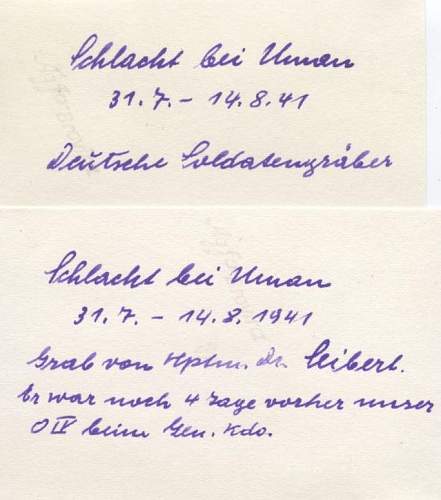 Schlacht bei Uman
31.7. – 14.8.41
Deutsche Soldatengräber
Schlacht bei Uman
31.7. – 14.8.1941
Grab von Hptm. Dr. Seibert.
Er war noch 4 Tage vorher unser
O IV beim Gen. Kdo.